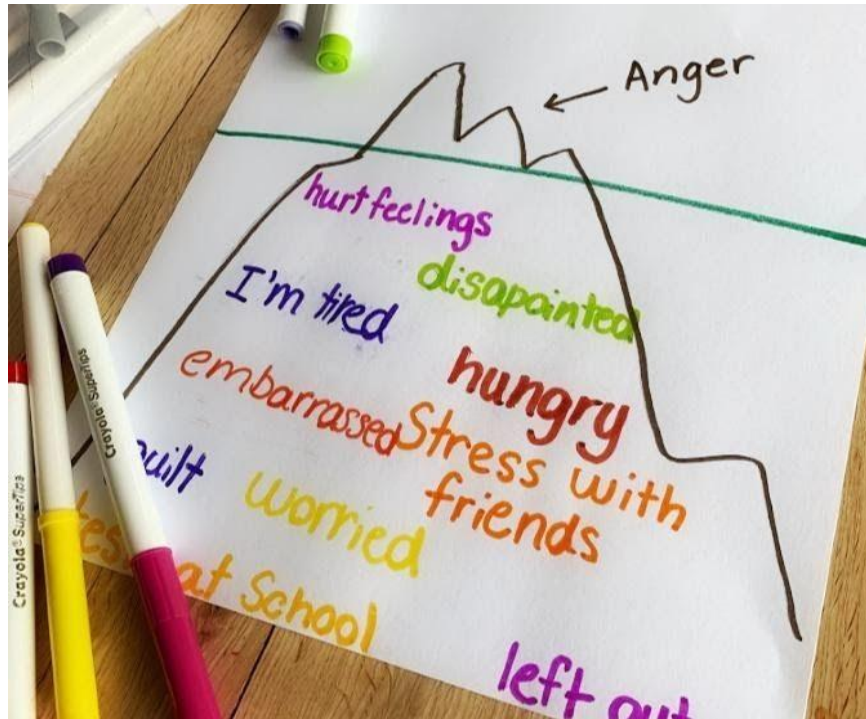 Anger
hurt feelings
disapointed
I'm tired
hungry
embarrassed
Stress with
friends
worried
at School
left out
Crayola® SuperTips
Crayola® SuperTips